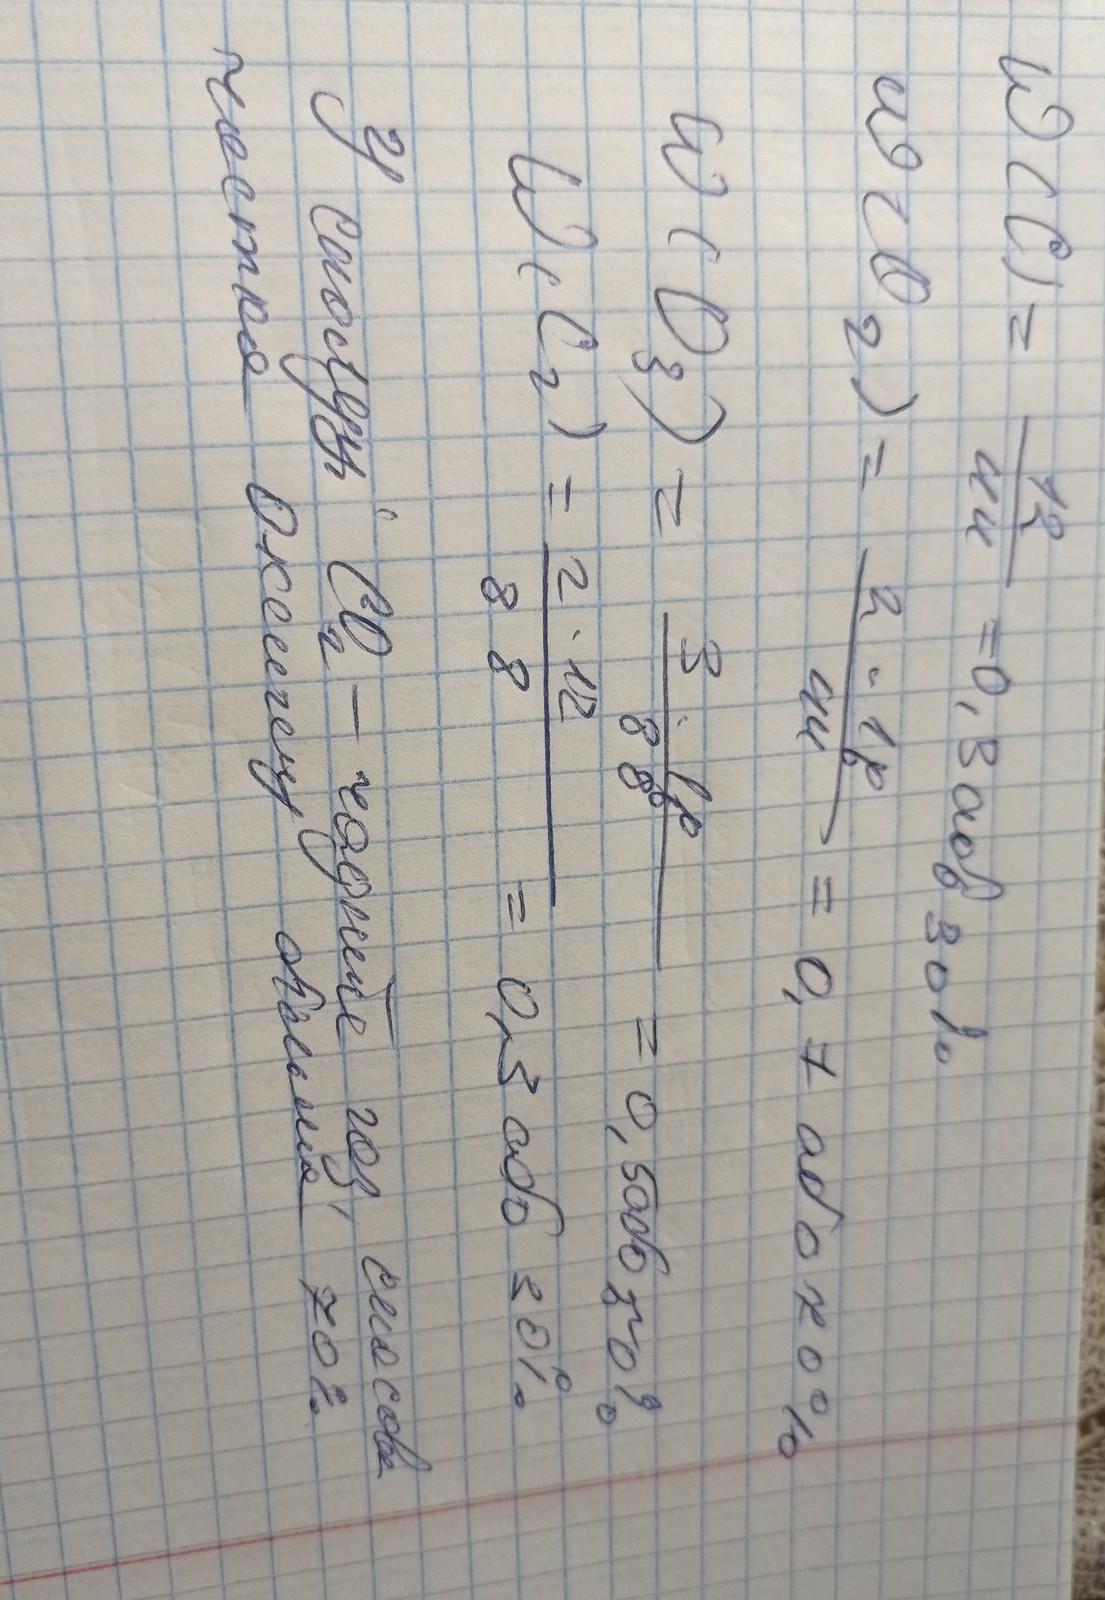 W(C) = 12/44 = 0,3 або 30%
W(O2) = 2·16/44 = 0,7 або 70%
W(O3) = 3·16/88 = 0,5 або 50%
W(C2) = 2·12/88 = 0,3 або 30%
У сполуці CO2 – чадний газ масова
частка Оксигену 70%